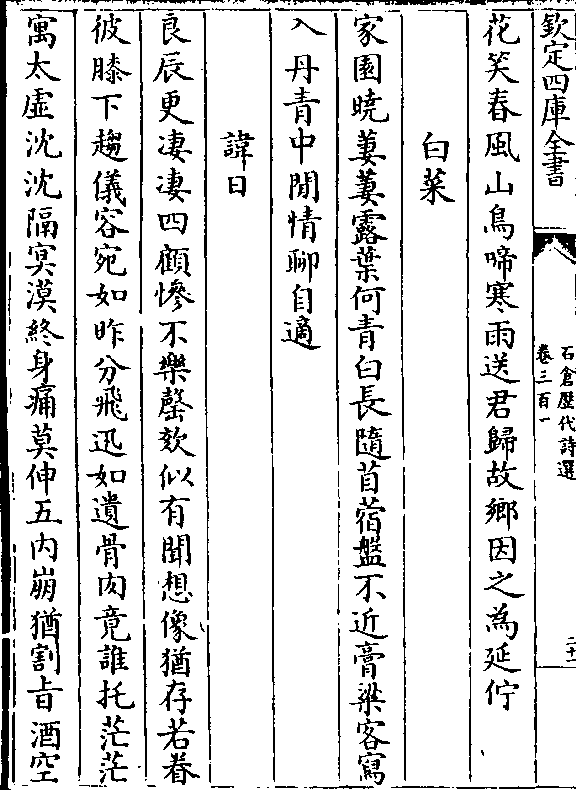 欽定四庫全書
石倉歴代詩選
卷三百一
二十一
花笑春風山鳥啼寒雨送君歸故鄉因之為延佇
白菜
家園曉萋萋露葉何青白長隨苜蓿盤不近膏粱客寫
入丹青中閒情聊自適
諱日
良辰更凄凄四顧慘不樂謦欬似有聞想像猶存若眷
彼膝下趨儀容宛如昨分飛迅如遺骨肉竟誰托茫茫
寓太虛沈沈隔冥漠終身痛莫伸五内崩猶割㫖酒空